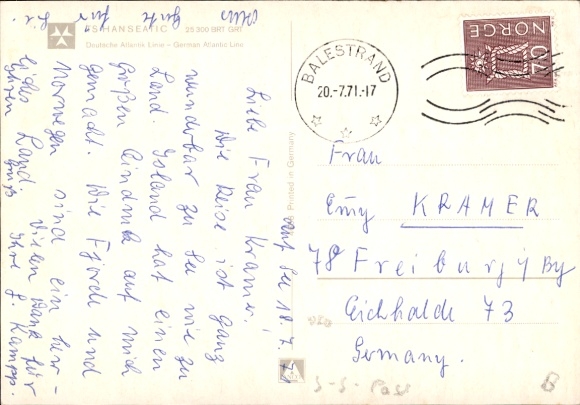 Alles
Gute für Sie.
TS HANSEATIC 25 300 BRT GRT
Deutsche Atlantik Linie – German Atlantic Line
auf See 18.7.71
Liebe Frau Kramer!
Die Reise ist ganz
wunderbar zu See wie zu
Land. Island hat einen
großen Eindruck auf mich
gemacht. Die Fjorde und
Norwegen sind ein herr-
liches Land. Vielen Dank für
Ihren Gruß Ihre
Kampp.
Printed in Germany
BALESTRAND
20.-7.71.-17
NORGE
70
Frau
Emy KRAMER
78 Freiburg i By
Eichhalde 73
Germany.
S-S-Post
B